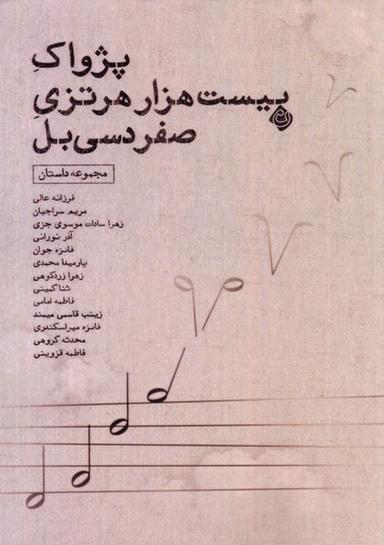 پژواکِ
بیست هزار هرتزیِ
صفر دسی بل
مجموعه داستان
فرزانه عالی
مریم سراجیان
زهرا سادات موسوی جزی
آذر نورانی
فائزه جوان
پارمیدا محمدی
زهرا زردکوهی
ثنا گمینی
فاطمه امامی
زینب قاسمی میمند
فائزه میراسکندری
محدثه گروهی
فاطمه قزوینی